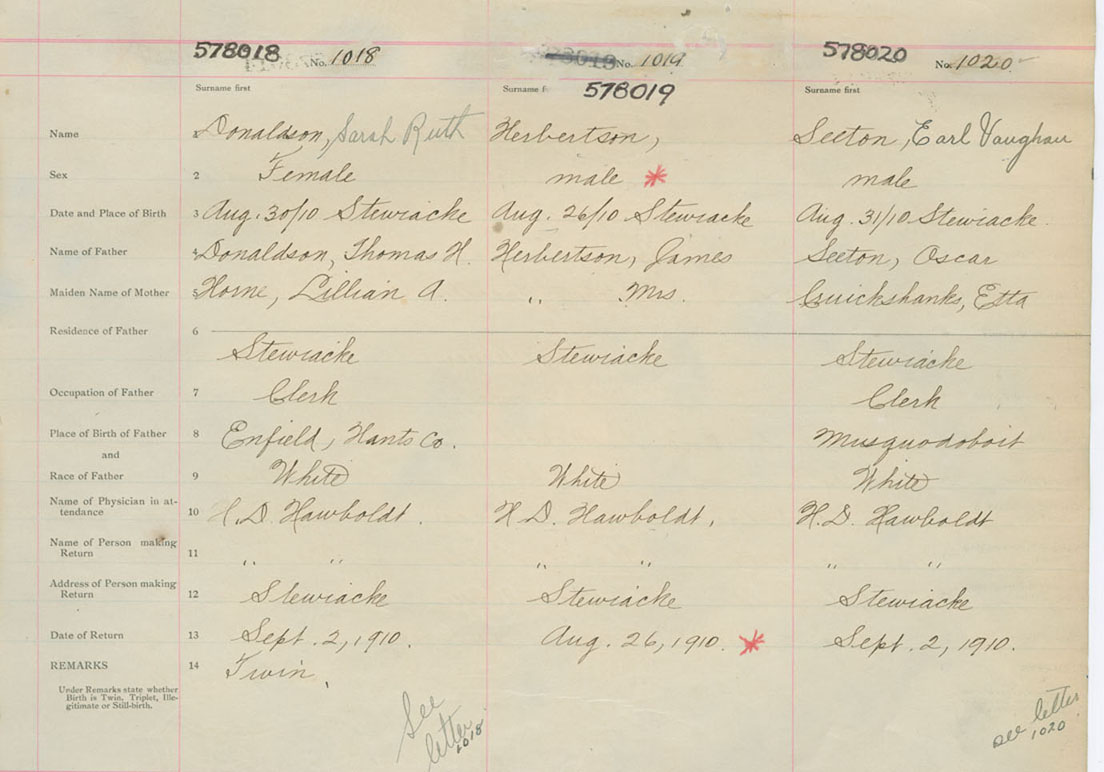 578018 No. 1018 No. 1019 578020 No. 1020
578019
Surname first Surname f Surname first
Name Donaldson, Sarah Ruth Herbertson, Seeton, Earl Vaughan
Sex 2 Female male * male
Date and Place of Birth 3 Aug. 30/10 Stewiacke Aug. 26/10 Stewiacke Aug. 31/10 Stewiacke.
Name of Father 4 Donaldson, Thomas H. Herbertson, James Seeton, Oscar
Maiden Name of Mother 5 Horne, Lillian A. " Mrs. Cruickshanks, Etta
Residence of Father 6
Stewiacke Stewiacke Stewiacke
Occupation of Father 7 Clerk Clerk
Place of Birth of Father 8 Enfield, Hants Co. Musquodoboit
and
Race of Father 9 White White White
Name of Physician in at-
tendance 10 H.D. Hawboldt. H.D. Hawboldt, H.D. Hawboldt
Name of Person making
Return 11 " " " " " "
Address of Person making
Return 12 Stewiacke Stewiacke Stewiacke
Date of Return 13 Sept. 2, 1910. Aug. 26, 1910. * Sept. 2, 1910.
REMARKS 14 Twin
Under Remarks state whether
Birth is Twin, Triplet, Ille-
gitimate or Still-birth.
See
letter
1018
see letter
1020